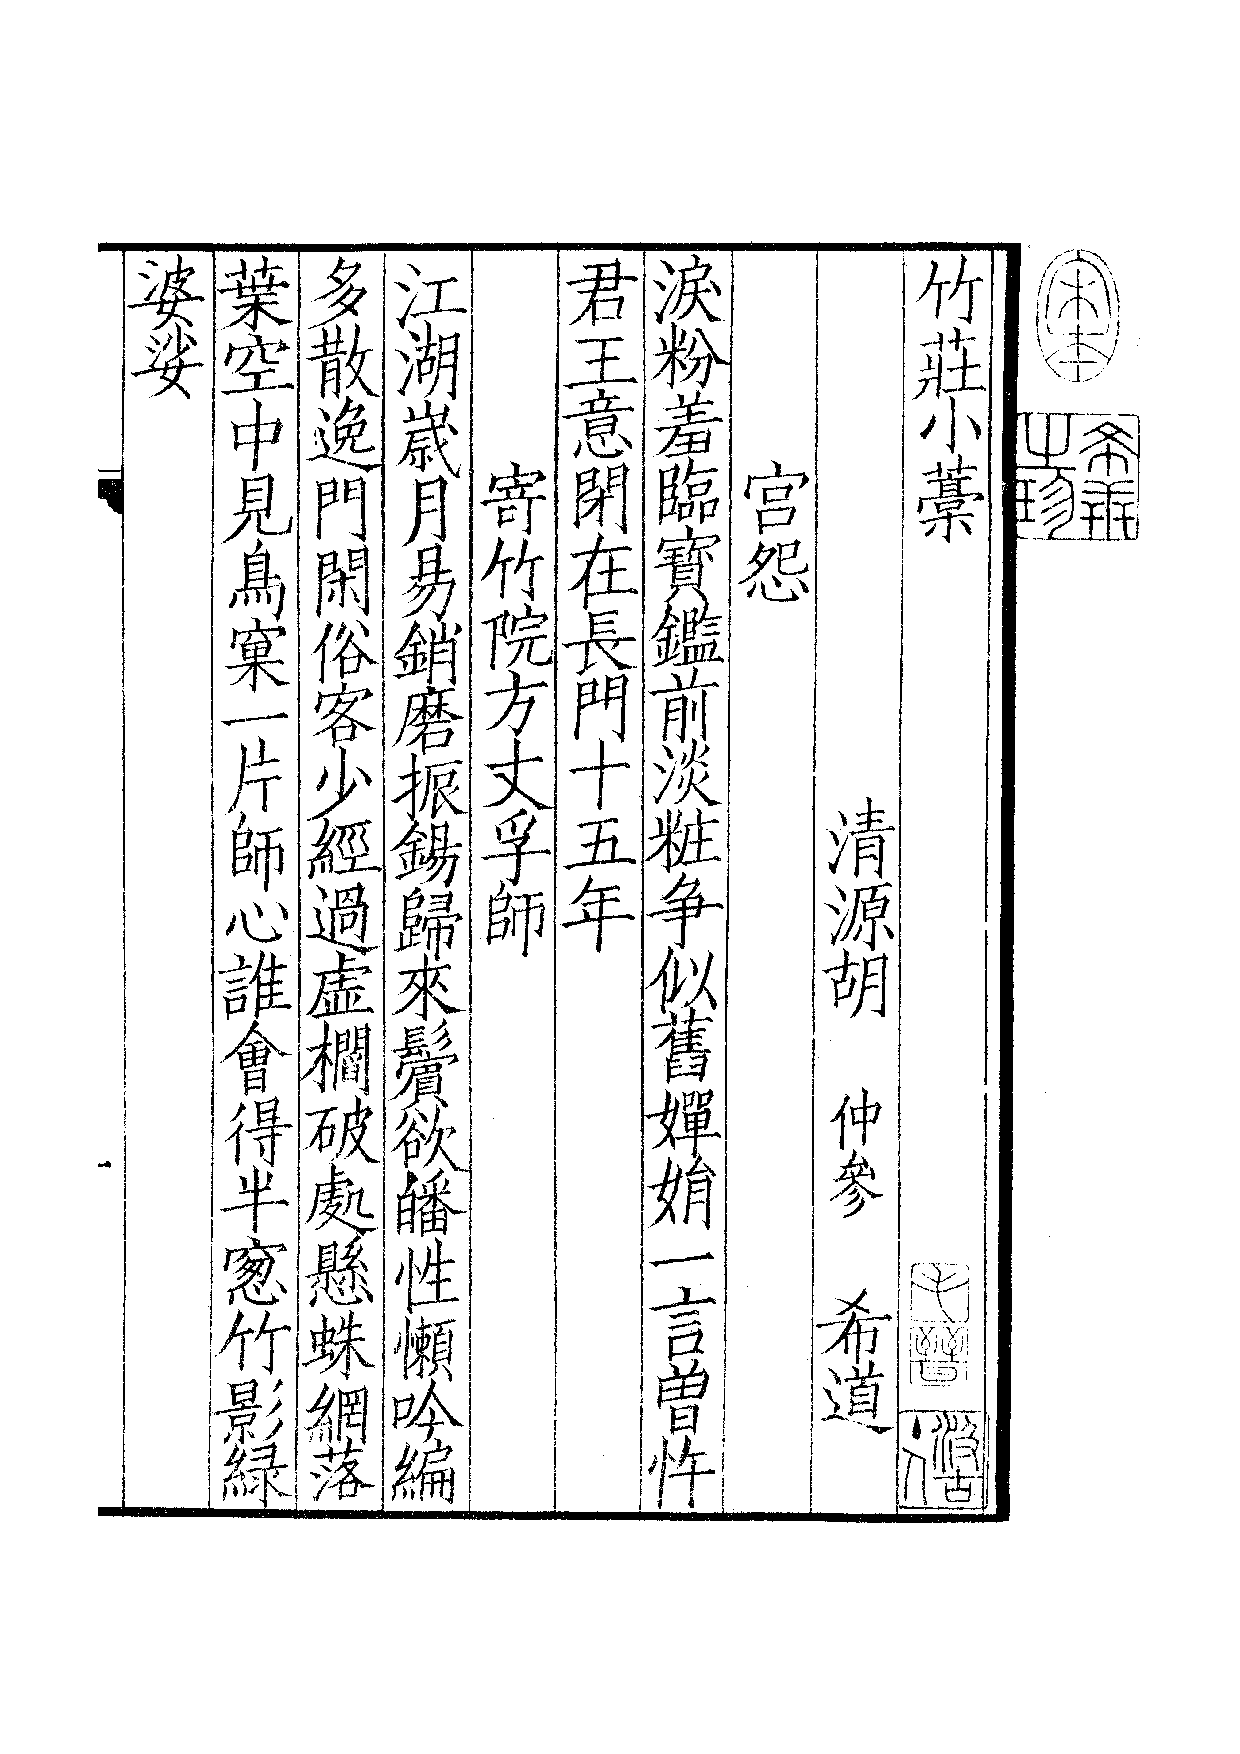 竹莊小藁
清源胡 仲參 希道
宫怨
淚粉羞臨寶鑑前淡粧争似舊嬋娟一言曽忤
君王意閉在長門十五年
寄竹院方丈孚師
江湖嵗月易銷磨振錫歸來鬢欲皤性懶吟編
多散逸門閑俗客少經過虚櫩破處懸蛛網落
葉空中見鳥窠一片師心誰會得半窻竹影緑
婆娑
宋本
希世之珍
毛晉
汲古主人